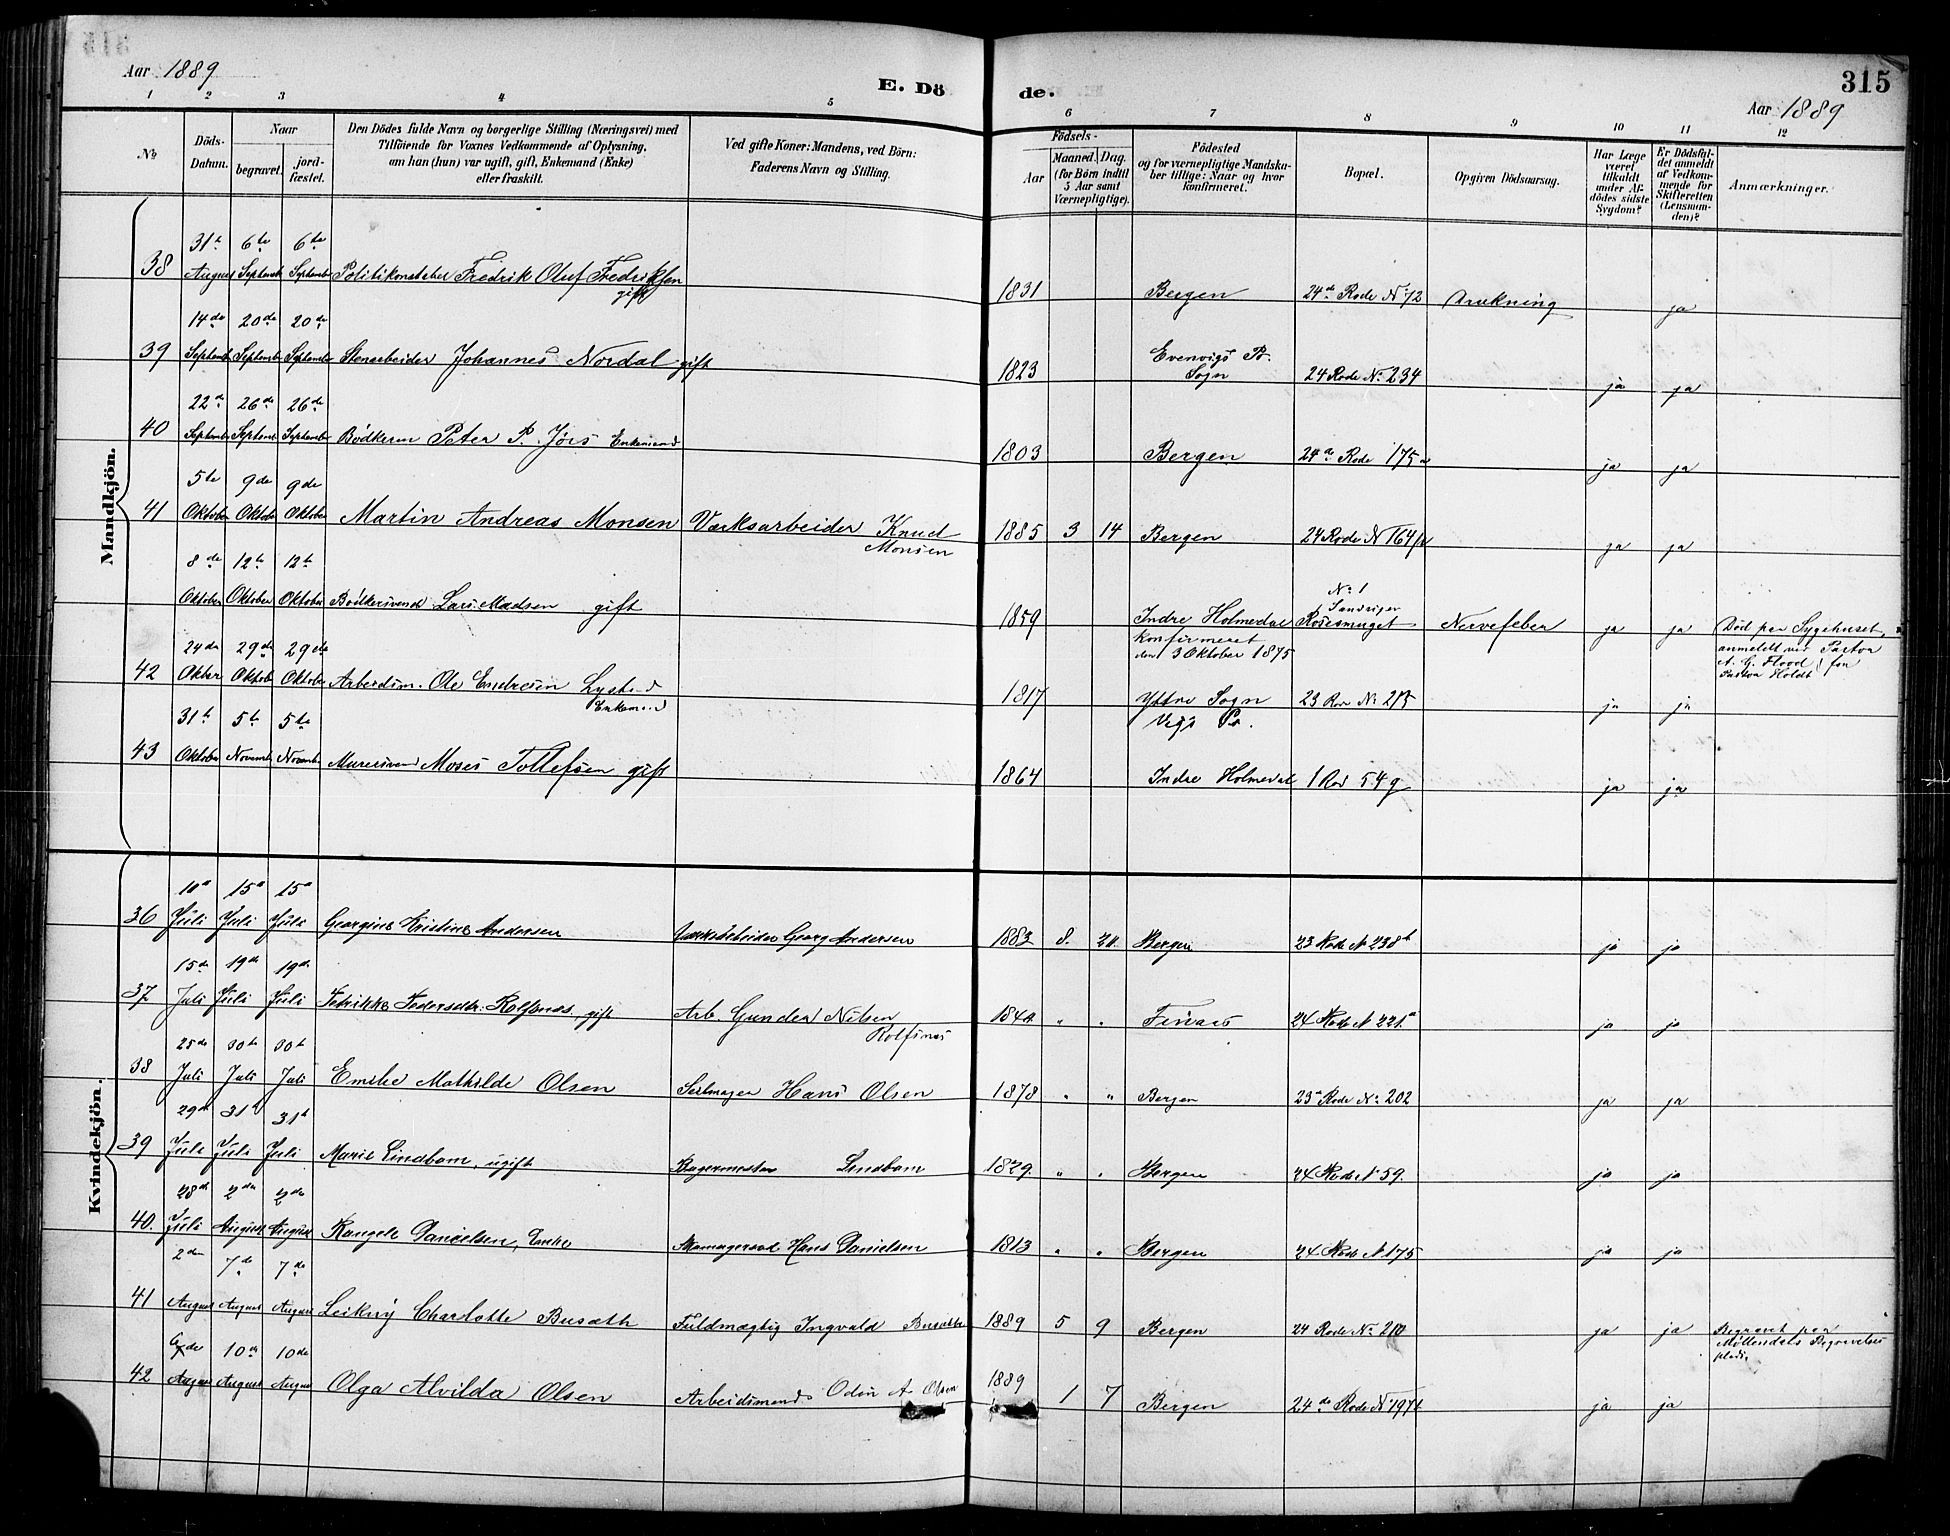 Aar 1889
E. Dö
de.
315
Aar 1889
1 2 3 4 5 6 7 8 9 10 11 12
№
Döds-
Datum.
Naar
begravet.
jord-
fæstet.
Den Dödes fulde Navn og borgerlige Stilling (Næringsvei) med
Tilföiende for Voxnes Vedkommende af Oplysning,
om han (hun) var ugift, gift, Enkemand (Enke)
eller fraskilt.
Ved gifte Koner: Mandens, ved Börn:
Faderens Navn og Stilling.
Födsels-
Aar
Maaned. Dag.
(for Börn indtil
5 Aar samt
Værnepligtige).
Födested
og for værnepligtige Mandska-
ber tillige: Naar og hvor
konfirmeret.
Bopæl.
Opgiven Dödsaarsag.
Har Læge
været
tilkaldt
under Af-
dödes sidste
Sygdom?
Er Dödsfal-
det anmeldt
af Vedkom-
mende for
Skifteretten
(Lensman-
den)?
Anmærkninger.
Mandkjön.
31te 6te 6te
38 August September September Politikonstabel Fredrik Oluf Fredriksen 1831 Bergen 24de Rode No 72 Drukning ja
gift
14de 20de 20de
39 September September September Stenarbeider Johannes Nordal gift 1823 Evenvigs Pr. Sogn 24 Rode No 234 ja ja
22de 26de 26de
40 September September September Bödkerm Peter P. Jörs Enkemand 1803 Bergen 24de Rode 175a ja ja
5te 9de 9de
41 Oktober Oktober Oktober Martin Andreas Monsen Værksarbeider Knud Monsen 1885 3 14 Bergen 24 Rode N 164 ja ja
8de 12te 12te
Oktober Oktober Oktober Bödkersvend Lars Madsen gift 1859 Indre Holmedal No 1 Sandviger Rosesmuget Nervefeber ja ja Död paa Sygehuset,
konfirmeret
den 3 Oktober 1875
anmeldt ved Pastor
A. G. Flood for
Pastor Holdt
24de 29de 29de
42 Oktber Oktob Oktober Arbeidsm. Ole Endresen Enkemand 1817 Yttre Sogn 23 Rode No 215 ja ja
31te 5te 5te
43 Oktober Novembr Novembr Murersvend Moses Tollefsen gift 1864 Indre Holmedal 1 Rod 54 g ja ja
Kvindekjön.
10de 15de 15de
36 Juli Juli Juli Georgine Kristine Andersen Værksarbeider Georg Andersen 1883 8. 20. Bergen 23 Rode N 238b ja ja
15de 19de 19de
37 Juli Juli Juli Pedersdtr. Rolfsnes, gift Arb. Gunder Nilsen Rolfsnes " " 24 Rode N 221a ja ja
25de 30te 30te
38 Juli Juli Juli Emilie Mathilde Olsen Seilmager Hans Olsen 1878 " " Bergen 23de Rode No 202 ja ja
29de 31te 31te
39 Juli Juli Juli Marie Lindbom, ugift Bagermester Lindbom 1829 " " Bergen 24 Rode N 59. ja ja
28de 2den 2den
40. Juli August August Rangele Danielsen, Enke Skomagersvd Hans Danielsen 1813 " " Bergen 24 Rode N 175 ja ja
2den 7de 7de
41 August August August Leikny Charlotte Busæth Fuldmægtig Ingvald Busæth 1889 5 9 Bergen 24 Rode No 210 ja ja Begravet paa
Möllendals Begravelses
plads.
6de 10de 10de
42 August August August Olga Alvilda Olsen Arbeidsmand Odin A. Olsen 1889 1 7 Bergen 24de Rode No 197 ja ja